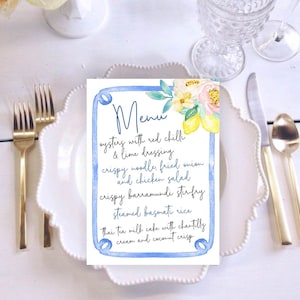 Menu
oysters with red chilli
& lime dressing
crispy noodle fried onion
and chicken salad
crispy barramundi stirfry
steamed basmati rice
thai tea milk cake with chantilly
cream and coconut crisp